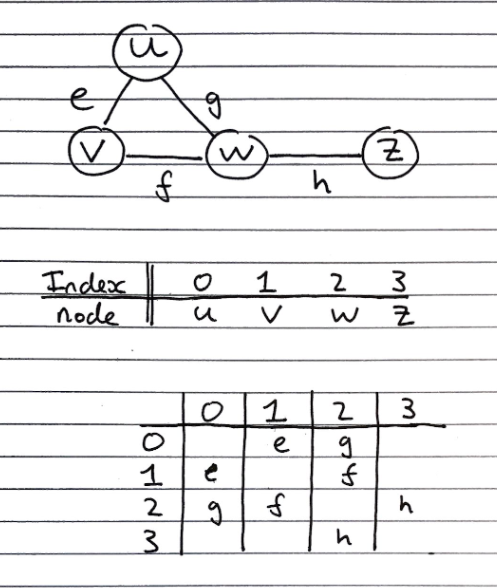 u
e g
v w z
f h
Index 0 1 2 3
node u v w z
0 1 2 3
0 e g
1 e f
2 g f h
3 h